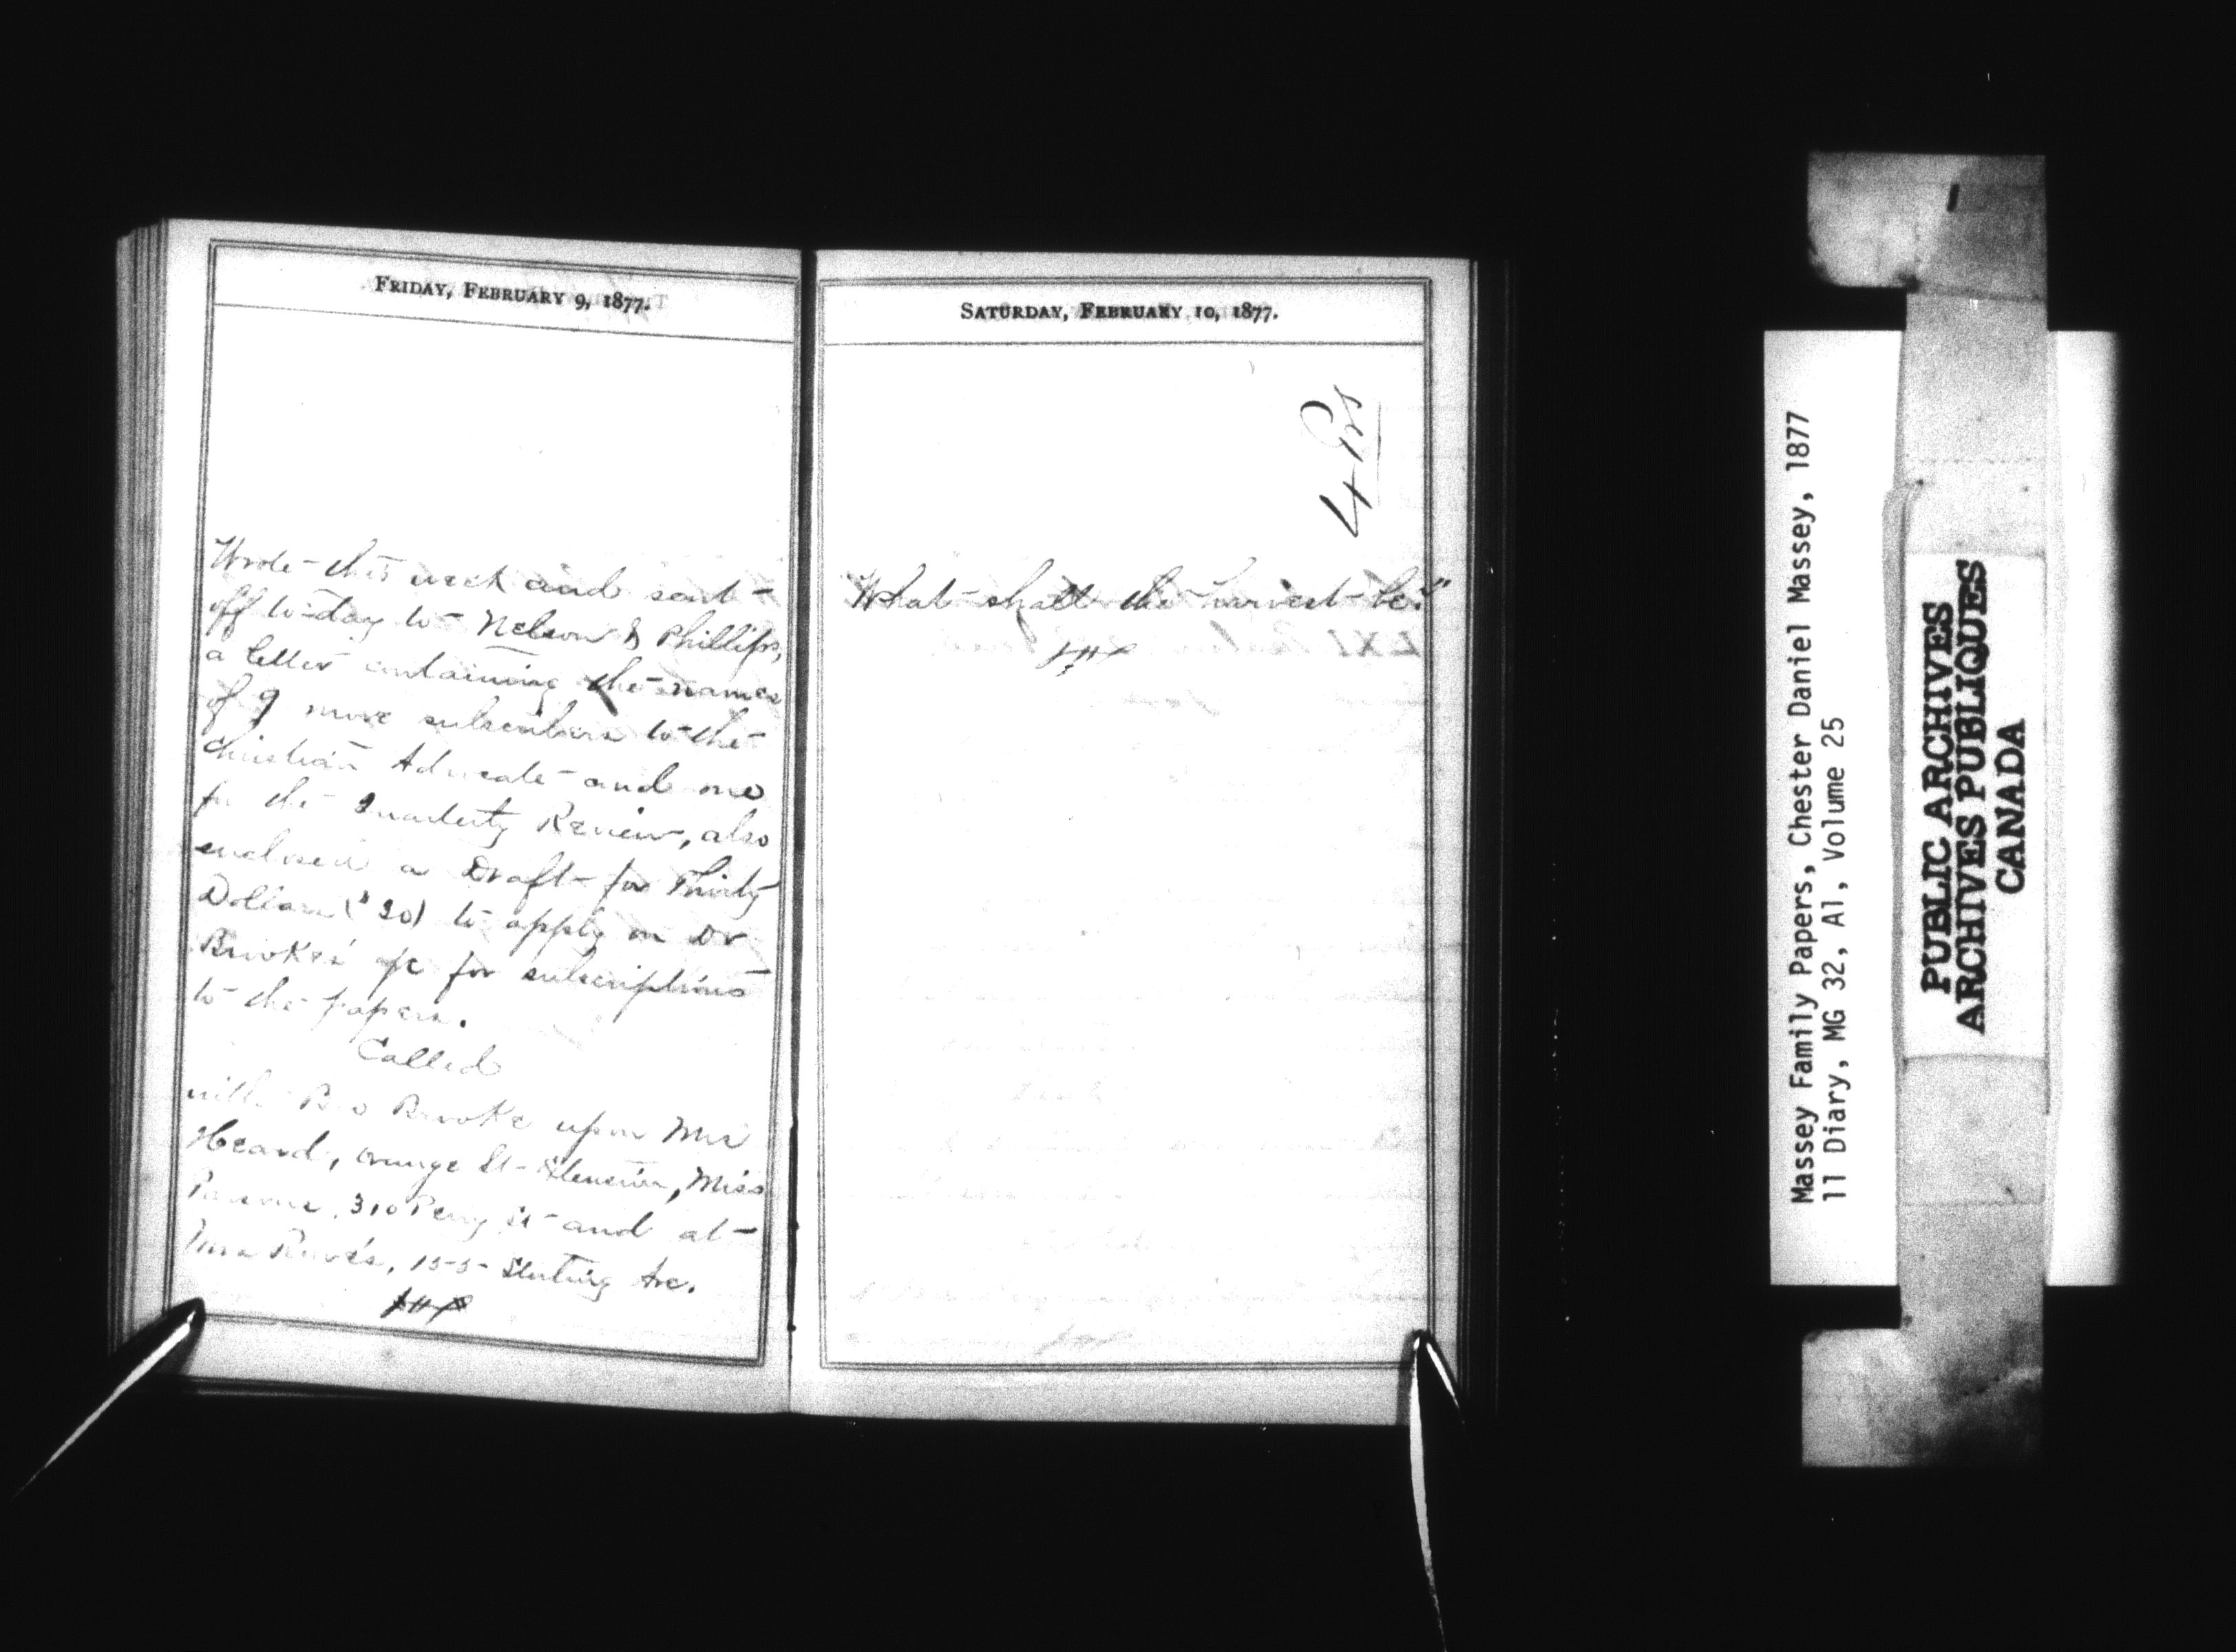 FRIDAY, FEBRUARY 9, 1877.
Wrote this week and sent
off to-day to Nelson & Phillips,
a letter containing the names
of 9 more subscribers to the
Christian Advocate and one
for the Quarterly Review, also
enclosed a Draft for Thirty
Dollars ($30) to apply on Dr
Brooke's a/c for subscriptions
to the papers.
Called
with Bro Brooke upon Mrs
Heard, Orange St, Miss
310 Perry St and at
Mrs 155 Sterling Ave.
SATURDAY, FEBRUARY 10, 1877.
4 Prs
"What shall the harvest be?"
Massey Family Papers, Chester Daniel Massey, 1877
11 Diary, MG 32, A1, Volume 25
PUBLIC ARCHIVES
ARCHIVES PUBLIQUES
CANADA